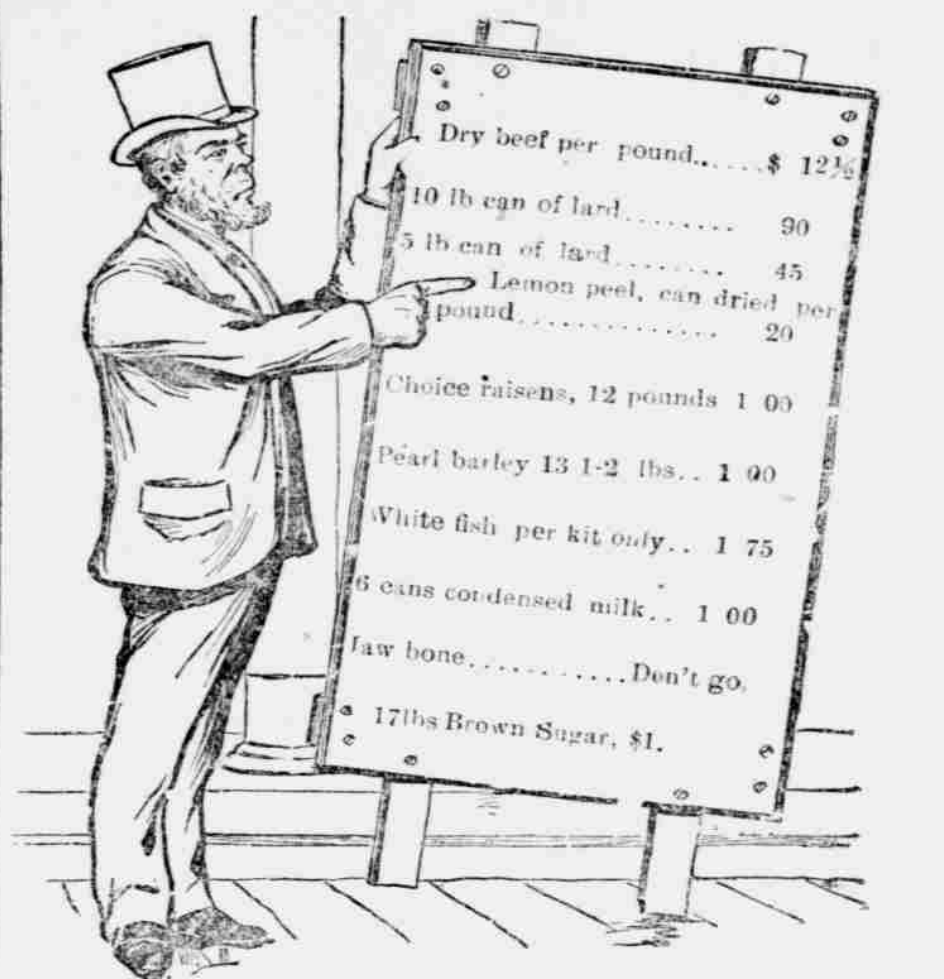 Dry beef per pound.......$ 12½
10 lb can of lard........ 90
5 lb can of lard........ 45
Lemon peel, can dried per
pound.............. 20
Choice raisens, 12 pounds 1 00
Pearl barley 13 1-2 lbs.. 1 00
White fish per kit only.. 1 75
6 cans condensed milk.. 1 00
Jaw bone............Don't go.
17lbs Brown Sugar, $1.